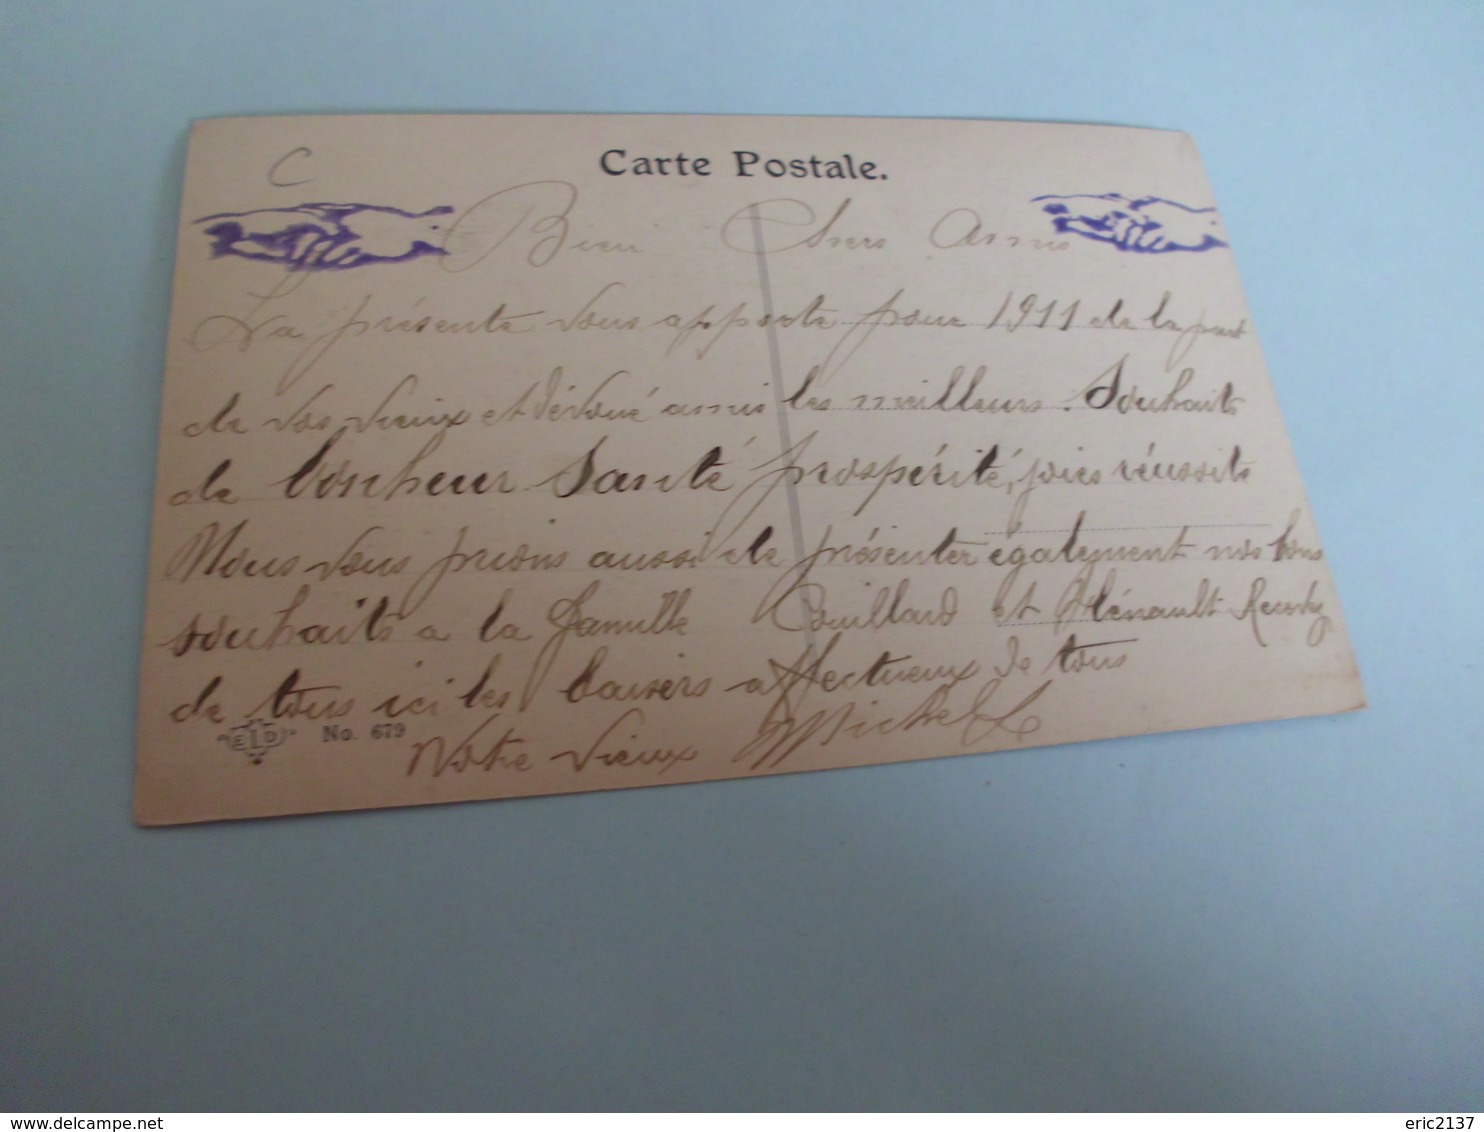 C
Carte Postale.
Bien Chers Amis
La présente vous apporte pour 1911 de la part
de vos vieux et dévoué amis les meilleurs. Souhaits
de bonheur Santé prospérité, joies réussite
Nous vous prions aussi de présenter également nos bons
souhaits a la famille Couillard et Hénault
de tous ici les baisers affectueux de tous
ELD No. 679
Votre vieux Michel L
delcampe.net
eric2137